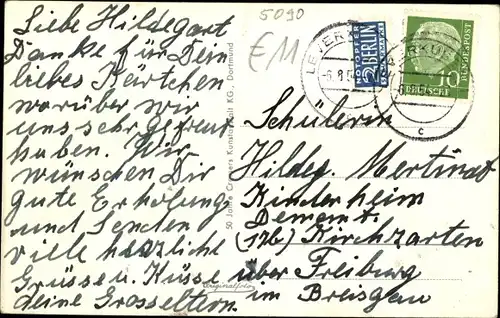 Liebe Hildegart
Danke für Dein
liebes Kärtchen
worüber wir
uns sehr gefreut
haben. Wir
wünschen Dir
gute Erholung
und Senden
viele herzliche
Grüsse u. Küsse
deine Grosseltern.
5090
EM
50 Jahre Cramers Kunstanstalt KG., Dortmund
Originalfoto
NOTOPFER
2 BERLIN
STEUERMARKE
LEVERKUSEN
-6.8.5
c
DEUTSCHE BUNDESPOST
10
Schülerin
Hildeg. Mertinat
Kinderheim
(17b) Kirchzarten
über Freiburg
im Breisgau